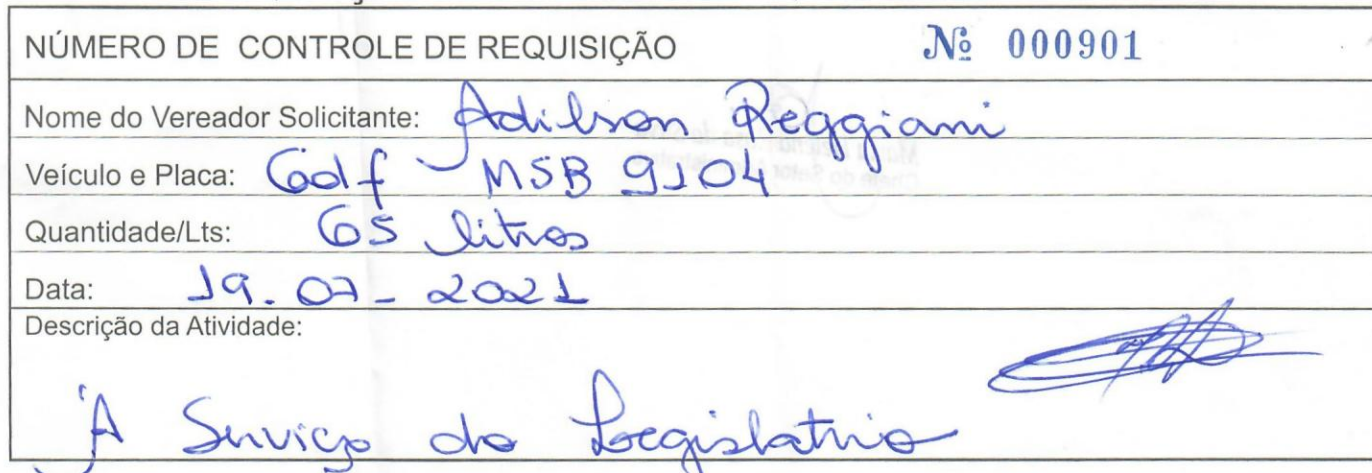 NÚMERO DE CONTROLE DE REQUISIÇÃO Nº 000901
Nome do Vereador Solicitante: Adilson Reggiani
Veículo e Placa: Golf MSB 9104
Quantidade/Lts: 65 litros
Data: 19.07-2021
Descrição da Atividade:
À Serviço do Legislativo